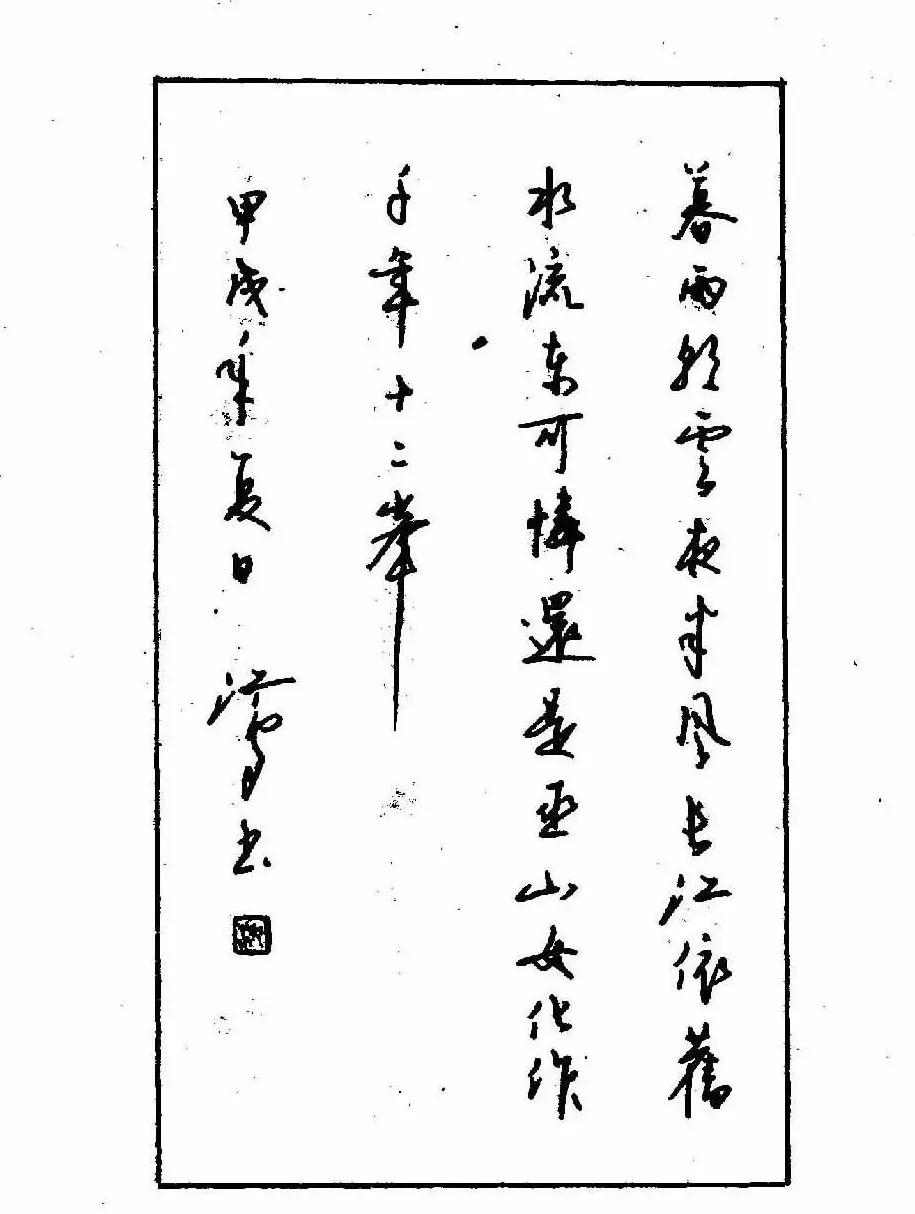 暮雨朝雲夜半風長江依舊
水流东可憐還是巫山女化作
千年十二峯
甲戌年夏日 江雪书